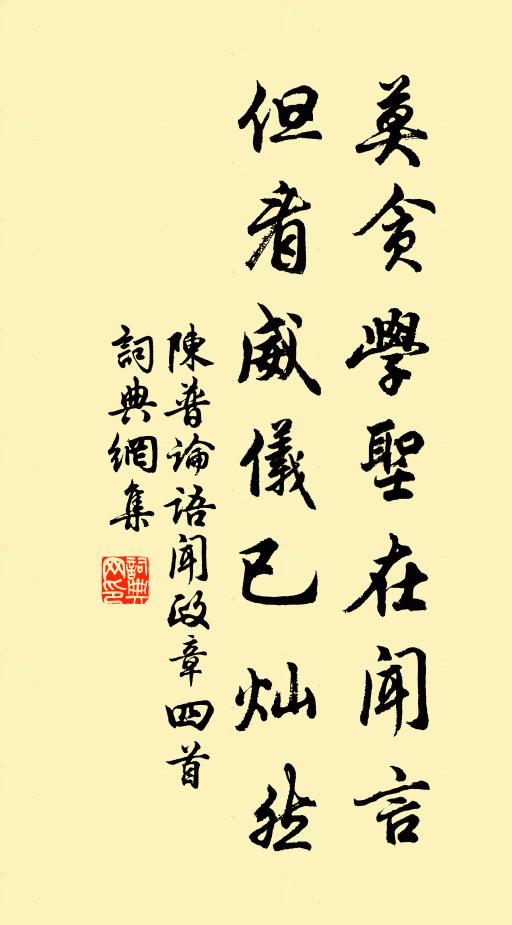 莫贪學聖在闻言
但看威儀已灿然
陳普論语闻政章四首
詞典網集
詞典网印